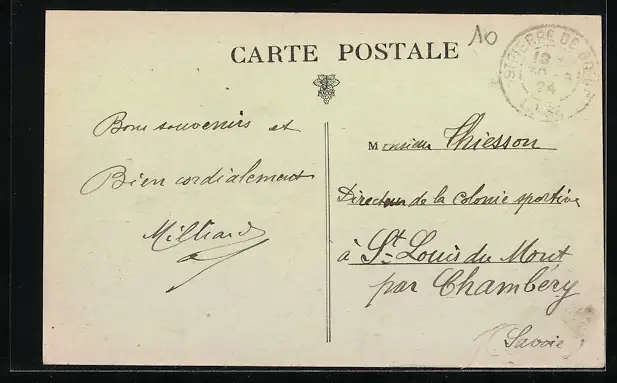 10
CARTE POSTALE
ST PIERRE DE BŒUF
18
30
24
LOIRE
Bons souvenirs et
Bien cordialement
Milliard
Monsieur Thiesson
Directeur de la colonie sportive
à St Louis du Mont
par Chambéry
Savoie